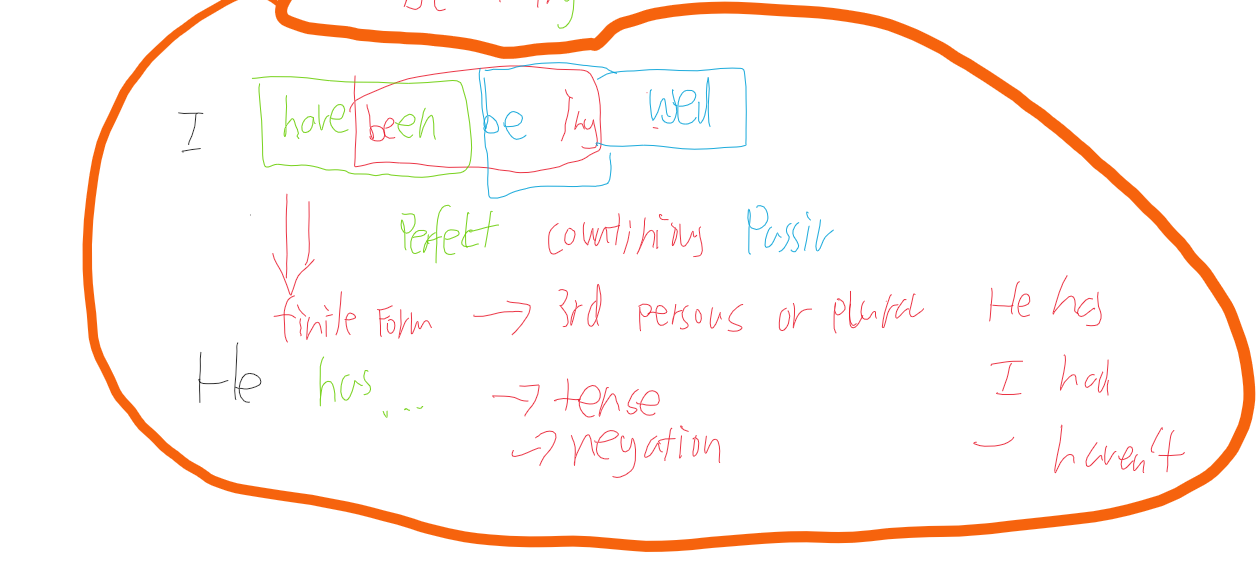 I have been be ing used
Perfect Passiv
finite Form → 3rd persons or plural He has
He has ... → tense I had
→ negation – haven't